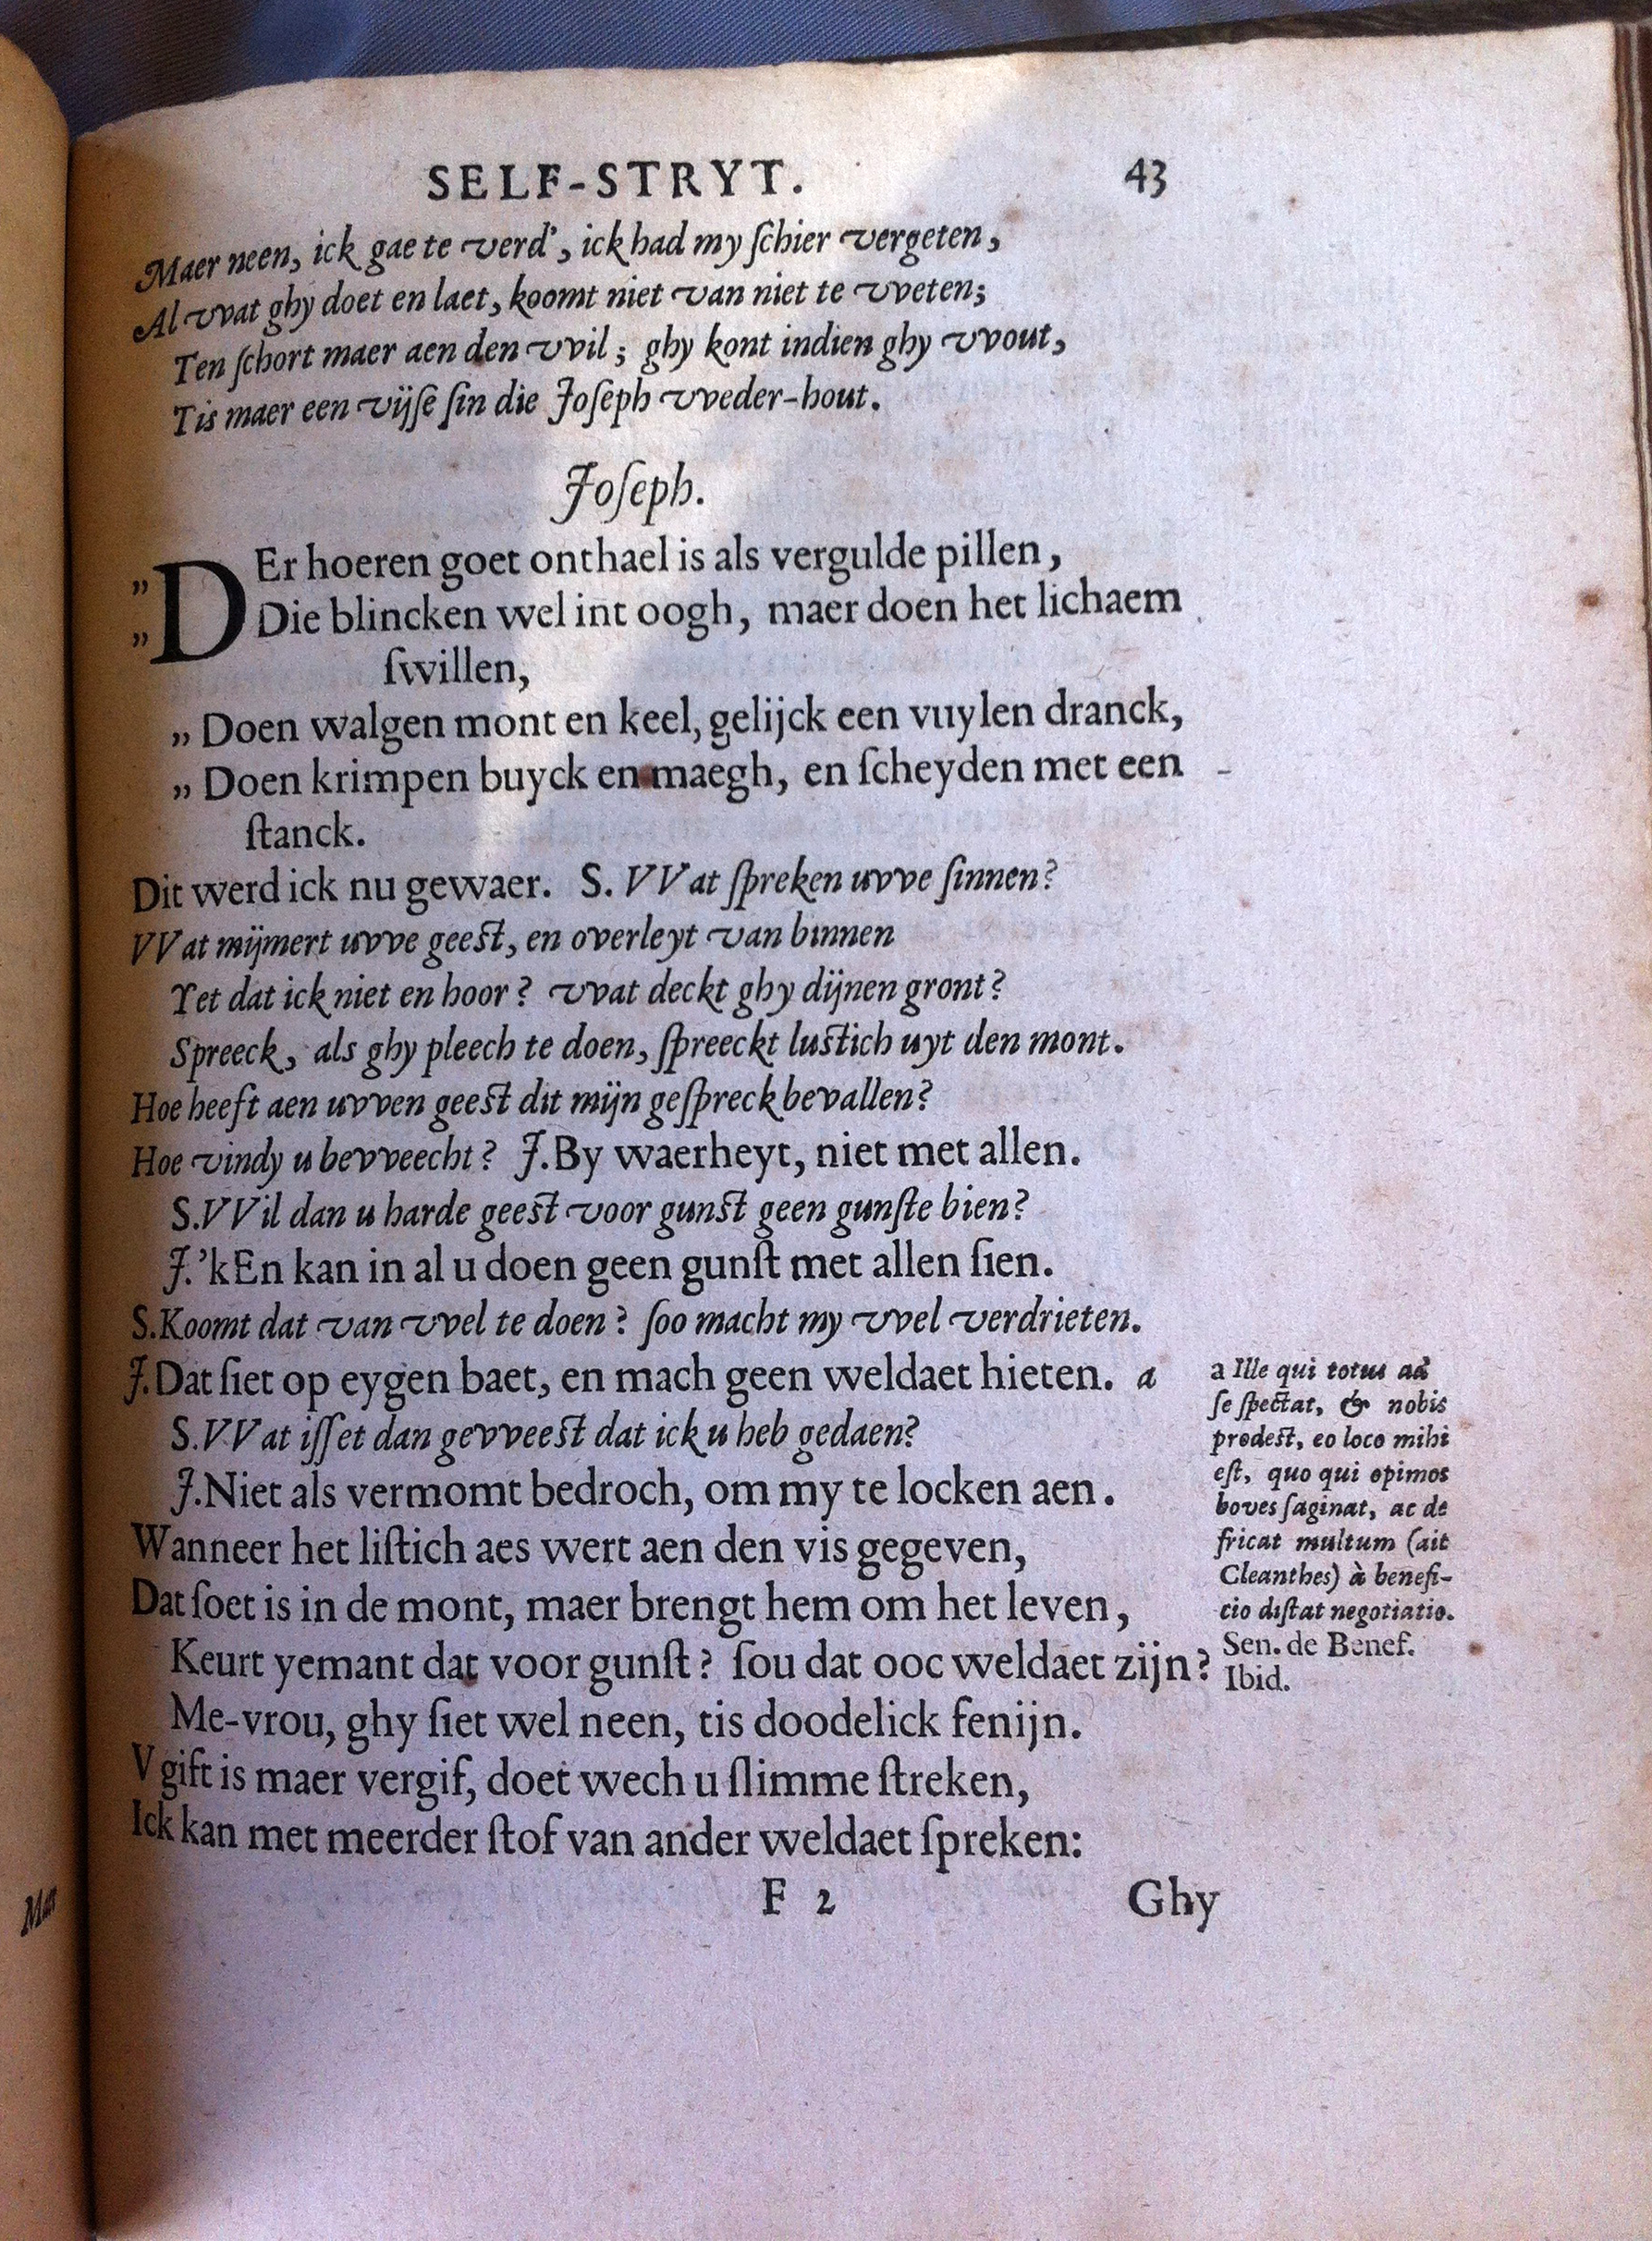 SELF-STRYT. 43
Maer neen, ick gae te verd', ick had my ſchier vergeten,
Al vvat ghy doet en laet, koomt niet van niet te vveten;
Ten ſchort maer aen den vvil; ghy kont indien ghy vvout,
Tis maer een vijſe ſin die Joſeph vveder-hout.
Joſeph.
„DEr hoeren goet onthael is als vergulde pillen,
„Die blincken wel int oogh, maer doen het lichaem
ſwillen,
„Doen walgen mont en keel, gelijck een vuylen dranck,
„Doen krimpen buyck en maegh, en ſcheyden met een
ſtanck.
Dit werd ick nu gewaer. S. VVat ſpreken uvve ſinnen?
VVat mijmert uvve geest, en overleyt van binnen
Yet dat ick niet en hoor? vvat deckt ghy dijnen gront?
Spreeck, als ghy pleech te doen, ſpreeckt lustich uyt den mont.
Hoe heeft aen uvven geest dit mijn geſpreck bevallen?
Hoe vindy u bevveecht? J. By waerheyt, niet met allen.
S. VVil dan u harde geest voor gunst geen gunſte bien?
J. 'kEn kan in al u doen geen gunſt met allen ſien.
S. Koomt dat van vvel te doen? ſoo macht my vvel verdrieten.
J. Dat ſiet op eygen baet, en mach geen weldaet hieten. a
S. VVat iſſet dan gevveest dat ick u heb gedaen?
J. Niet als vermomt bedroch, om my te locken aen.
Wanneer het liſtich aes wert aen den vis gegeven,
Dat ſoet is in de mont, maer brengt hem om het leven,
Keurt yemant dat voor gunſt? ſou dat ooc weldaet zijn?
Me-vrou, ghy ſiet wel neen, tis doodelick fenijn.
V gift is maer vergif, doet wech u ſlimme ſtreken,
Ick kan met meerder ſtof van ander weldaet ſpreken:
F 2 Ghy
a Ille qui totus ad
ſe ſpectat, & nobis
prodest, eo loco mihi
eſt, quo qui opimos
boves ſaginat, ac de
fricat multum (ait
Cleanthes) à benefi-
cio diſtat negotiatio.
Sen. de Benef.
Ibid.